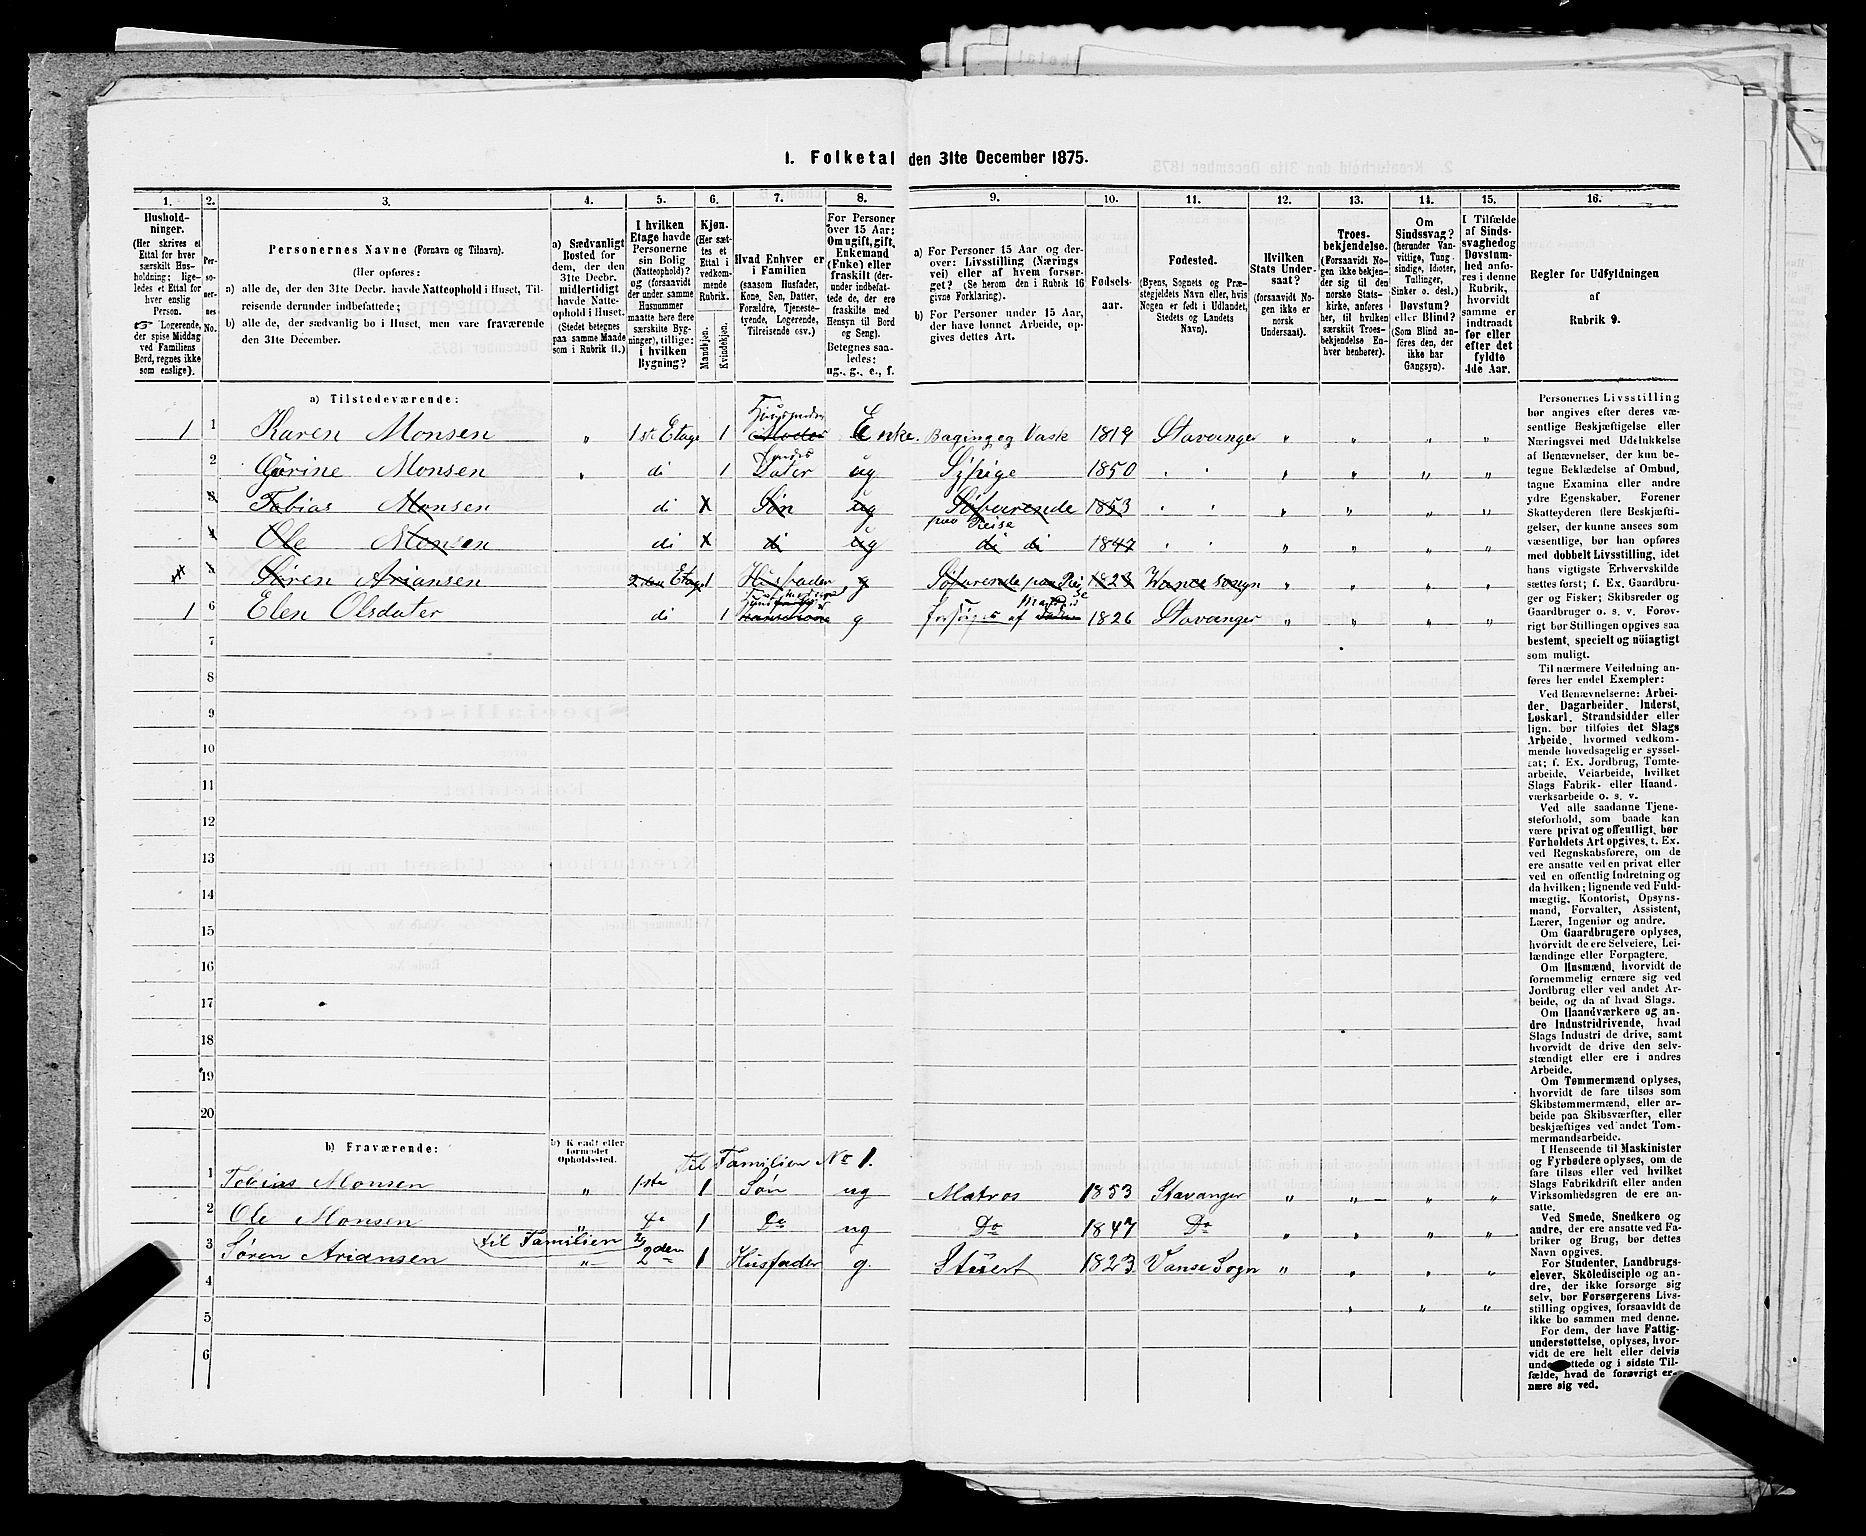 1. Folketal den 31te December 1875.
1. 2. 3. 4. 5. 6. 7. 8. 9. 10. 11. 12. 13. 14. 15. 16.
Hushold-
ninger.
(Her skrives et
Ettal for hver
særskilt Hus-
holdning; lige-
ledes et Ettal for
hver enslig
Person.
☞ Logerende,
der spise Middag
ved Familiens
Bord, regnes ikke
som enslige).
Per-
so-
ner-
nes
No.
Personernes Navne (Fornavn og Tilnavn).
(Her opføres:
a) alle de, der den 31te Decbr. havde Natteophold i Huset, Til-
reisende derunder indbefattede;
b) alle de, der sædvanlig bo i Huset, men vare fraværende
den 31te December.
a) Sædvanligt
Bosted for
dem, der den
31te Decbr.
midlertidigt
havde Natte-
ophold i Huset.
(Stedet betegnes
paa samme Maade
som i Rubrik 11.)
I hvilken
Etage havde
Personerne
sin Bolig
(Natteophold)?
og (forsaavidt
der under samme
Husnummer
maatte høre flere
særskilte Byg-
ninger), tillige:
i hvilken
Bygning?
Kjøn.
(Her sæt-
tes et
Ettal i
vedkom-
mende
Rubrik.
Mandkjøn.
Kvindekjøn.
Hvad Enhver er
i Familien
(saasom Husfader,
Kone, Søn, Datter,
Forældre, Tjeneste-
tyende, Logerende,
Tilreisende osv.)
For Personer
over 15 Aar:
Om ugift, gift,
Enkemand
(Enke) eller
fraskilt (der-
under indbefat-
tede de, der ere
fraskilte med
Hensyn til Bord
og Seng).
Betegnes saa-
ledes:
ug., g., e., f.
a) For Personer 15 Aar og der-
over: Livsstilling (Nærings
vei) eller af hvem forsør-
get? (Se herom den i Rubrik 16
givne Forklaring).
b) For Personer under 15 Aar,
der have lønnet Arbeide, op-
gives dettes Art.
Fødsels-
aar.
Fødested.
(Byens, Sognets og Præ-
stegjeldets Navn eller, hvis
Nogen er født i Udlandet,
Stedets og Landets
Navn).
Hvilken
Stats Under-
saat?
(forsaavidt No-
gen ikke er
norsk
Undersaat).
Troes-
bekjendelse.
(Forsaavidt No-
gen ikke bekjen-
der sig til den
norske Stats-
kirke, anføres
her, til hvilken
særskilt Troes-
bekjendelse En-
hver henhører).
Om
Sindssvag?
(herunder Van-
vittige, Tung-
sindige, Idioter,
Tullinger,
Sinker o. desl.)
Døvstum?
eller Blind?
(Som Blind an-
føres den, der
ikke har
Gangsyn).
I Tilfælde
af Sinds-
svaghed og
Døvstum-
hed anfø-
res i denne
Rubrik,
hvorvidt
samme er
indtraadt
før eller
efter det
fyldte
4de Aar.
Regler for Udfyldningen
af
Rubrik 9.
a) Tilstedeværende:
1 1 Karen Monsen „ 1st Etage 1 Moder Enke. Baging og Vask 1819 Stavanger „ „ „ „
2 Gurine Monsen „ di 1 Dater ug Sypige 1850 „ „ „ „ „ „
3 Tobias Monsen di X Søn ug Søfarende 1853 „ „ „ „ „ „
paa Reise
4 Ole Monsen di X di ug di di 1847 „ „ „ „ „ „
5 Søren Ariansen 2den Etage Husfader g Søfarende paa Rei 1823 Wanse Songn „ „ „ „
se
1 6 Elen Olsdater di 1 g forsørges af 1826 Stavanger „ „ „ „
7
8
9
10
11
12
13
14
15
16
17
18
19
20
b) Fraværende:
b) Kjendt eller
formodet
Opholdssted.
Til Familien No 1.
1 Tobias Monsen „ 1ste 1 Søn ug Matros 1853 Stavanger „ „ „ „
2 Ole Monsen „ Do 1 Do ug Do 1847 Do „ „ „ „
til Familien 2
3 Søren Ariansen „ 2den 1 Husfader g. Stüert 1823 Vanse Sogn „ „ „ „
4 „ „ „
5
6
Personernes Livsstilling
bør angives efter deres væ-
sentlige Beskjæftigelse eller
Næringsvei med Udelukkelse
af Benævnelser, der kun be-
tegne Beklædelse af Ombud,
tagne Examina eller andre
ydre Egenskaber. Forener
Skatteyderen flere Beskjæfti-
gelser, der kunne ansees som
væsentlige, bør han opføres
med dobbelt Livsstilling, idet
hans vigtigste Erhvervskilde
sættes først; f. Ex. Gaardbru-
ger og Fisker; Skibsreder og
Gaardbruger o. s. v. Forøv-
rigt bør Stillingen opgives saa
bestemt, specielt og nöiagtigt
som muligt.
Til nærmere Veiledning an-
føres her endel Exempler:
Ved Benævnelserne: Arbei-
der, Dagarbeider, Inderst,
Løskarl, Strandsidder eller
lign. bør tilføies det Slags
Arbeide, hvormed vedkom-
mende hovedsagelig er syssel-
sat; f. Ex. Jordbrug, Tomte-
arbeide, Veiarbeide, hvilket
Slags Fabrik- eller Haand-
værksarbeide o. s. v.
Ved alle saadanne Tjene-
steforhold, som baade kan
være privat og offentligt, bør
Forholdets Art opgives, t. Ex.
ved Regnskabsførere, om de
ere ansatte ved en privat eller
ved en offentlig Indretning og
da hvilken; lignende ved Fuld-
mægtig, Kontorist, Opsyns-
mand, Forvalter, Assistent,
Lærer, Ingeniør og andre.
Om Gaardbrugere oplyses,
hvorvidt de ere Selveiere, Lei-
lændinge eller Forpagtere.
Om Husmænd, hvorvidt de
fornemmelig ernære sig ved
Jordbrug eller ved andet Ar-
beide, og da af hvad Slags.
Om Haandværkere og an-
dre Industridrivende, hvad
Slags Industri de drive, samt
hvorvidt de drive den selv-
stændigt eller ere i andres
Arbeide.
Om Tømmermænd oplyses,
hvorvidt de fare tilsøs som
Skibstømmermænd, eller ar-
beide paa Skibsværfter, eller
beskjæftiges ved andet Tøm-
mermandsarbeide.
I Henseende til Maskinister
og Fyrbødere oplyses, om de
fare tilsøs eller ved hvilket
Slags Fabrikdrift eller anden
Virksomhedsgren de ere an-
satte.
Ved Smede, Snedkere og
andre, der ere ansatte ved Fa-
briker og Brug, bør dettes
Navn opgives.
For Studenter, Landbrugs-
elever, Skoledisciple og an-
dre, der ikke forsørge sig
selv, bør Forsørgerens Livs-
stilling opgives, forsaavidt de
ikke bo sammen med denne.
For dem, der have Fattig-
understøttelse, oplyses, hvor-
vidt de ere helt eller delvis
understøttede og i sidste Til-
fælde, hvad de forøvrigt er-
nære sig ved.